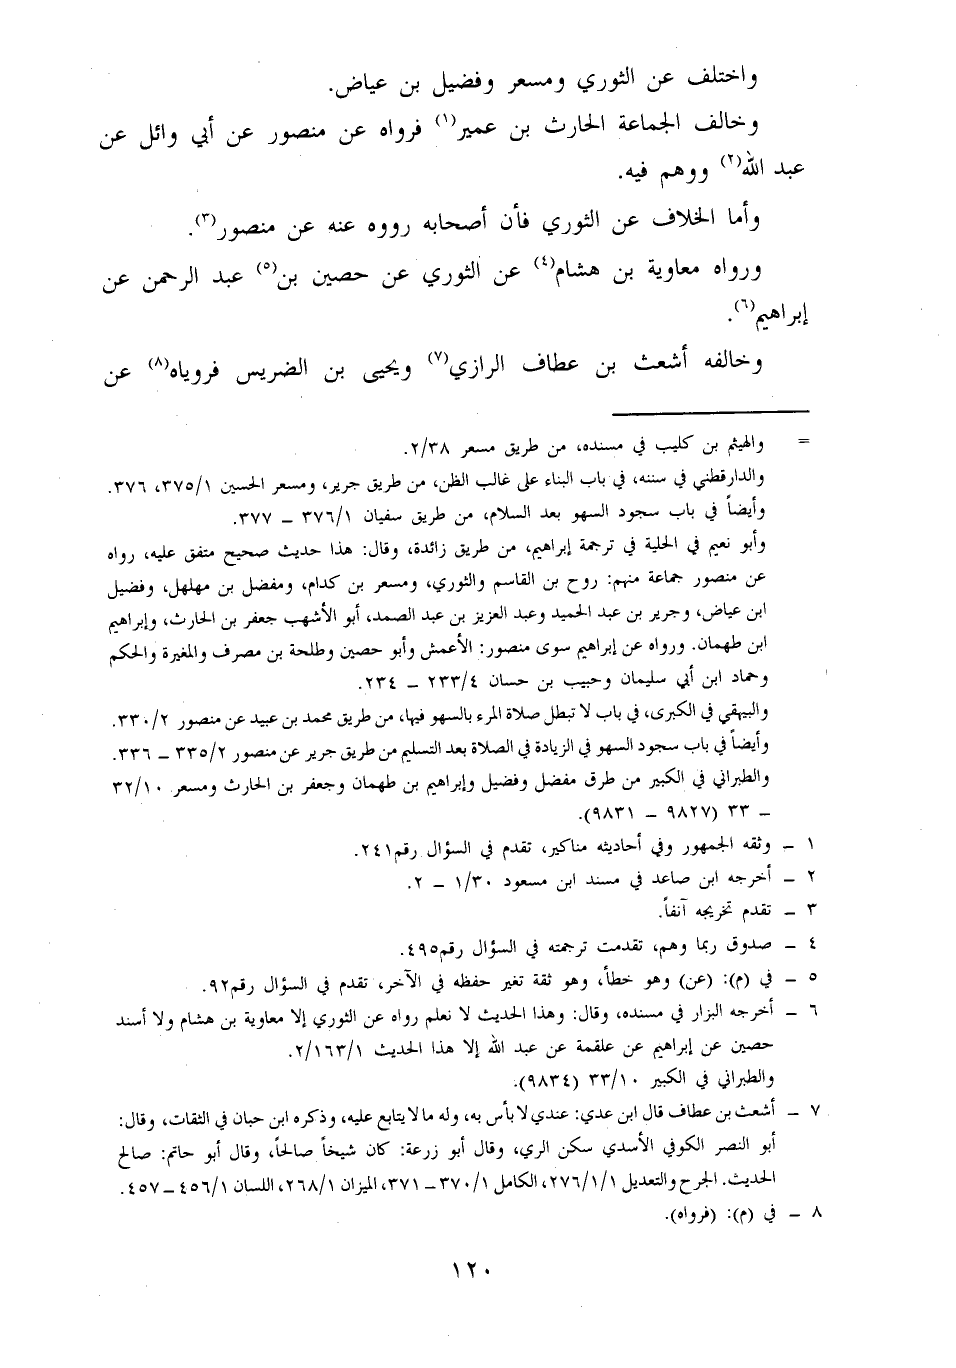 واختلف عن الثوري ومسعر وفضيل بن عياض.
وخالف الجماعة الحارث بن عمير(١) فرواه عن منصور عن أبي وائل عن
عبد الله(٢) ووهم فيه.
وأما الخلاف عن الثوري فأن أصحابه رووه عنه عن منصور(٣).
ورواه معاوية بن هشام(٤) عن الثوري عن حصين بن(٥) عبد الرحمن عن
إبراهيم(٦).
وخالفه أشعث بن عطاف الرازي(٧) ويحيى بن الضريس فروياه(٨) عن
= والهيثم بن كليب في مسنده، من طريق مسعر ٢/٣٨.
والدارقطني في سننه، في باب البناء على غالب الظن، من طريق جرير، ومسعر الحسين ٣٧٥/١، ٣٧٦.
وأيضاً في باب سجود السهو بعد السلام، من طريق سفيان ٣٧٦/١ – ٣٧٧.
وأبو نعيم في الحلية في ترجمة إبراهيم، من طريق زائدة، وقال: هذا حديث صحيح متفق عليه، رواه
عن منصور جماعة منهم: روح بن القاسم والثوري، ومسعر بن كدام، ومفضل بن مهلهل، وفضيل
ابن عياض، وجرير بن عبد الحميد وعبد العزيز بن عبد الصمد، أبو الأشهب جعفر بن الحارث، وإبراهيم
ابن طهمان. ورواه عن إبراهيم سوى منصور: الأعمش وأبو حصين وطلحة بن مصرف والمغيرة والحكم
وحماد ابن أبي سليمان وحبيب بن حسان ٢٣٣/٤ – ٢٣٤.
والبيهقي في الكبرى، في باب لا تبطل صلاة المرء بالسهو فيها، من طريق محمد بن عبيد عن منصور ٣٣٠/٢.
وأيضاً في باب سجود السهو في الزيادة في الصلاة بعد التسليم من طريق جرير عن منصور ٣٣٥/٢ – ٣٣٦.
والطبراني في الكبير من طرق مفضل وفضيل وإبراهيم بن طهمان وجعفر بن الحارث ومسعر ٣٢/١٠
– ٣٣ (٩٨٢٧ – ٩٨٣١).
١ – وثقه الجمهور وفي أحاديثه مناكير، تقدم في السؤال رقم ٢٤١.
٢ – أخرجه ابن صاعد في مسند ابن مسعود ١/٣٠ – ٢.
٣ – تقدم تخريجه آنفاً.
٤ – صدوق ربما وهم، تقدمت ترجمته في السؤال رقم ٤٩٥.
٥ – في (م): (عن) وهو خطأ، وهو ثقة تغير حفظه في الآخر، تقدم في السؤال رقم ٩٢.
٦ – أخرجه البزار في مسنده، وقال: وهذا الحديث لا نعلم رواه عن الثوري إلا معاوية بن هشام ولا أسند
حصين عن إبراهيم عن علقمة عن عبد الله إلا هذا الحديث ٢/١٦٣/١.
والطبراني في الكبير ٣٣/١٠ (٩٨٣٤).
٧ – أشعث بن عطاف قال ابن عدي: عندي لا بأس به، وله ما لا يتابع عليه، وذكره ابن حبان في الثقات، وقال:
أبو النصر الكوفي الأسدي سكن الري، وقال أبو زرعة: كان شيخاً صالحاً، وقال أبو حاتم: صالح
الحديث. الجرح والتعديل ٢٧٦/١/١، الكامل ٣٧٠/١ – ٣٧١، الميزان ٢٦٨/١، اللسان ٤٥٦/١ – ٤٥٧.
٨ – في (م): (فرواه).
١٢٠